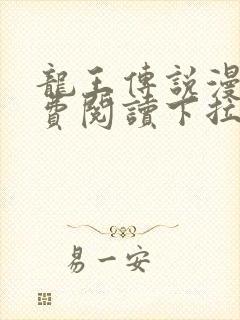 龍王傳說漫
費閱讀下拉
易一安